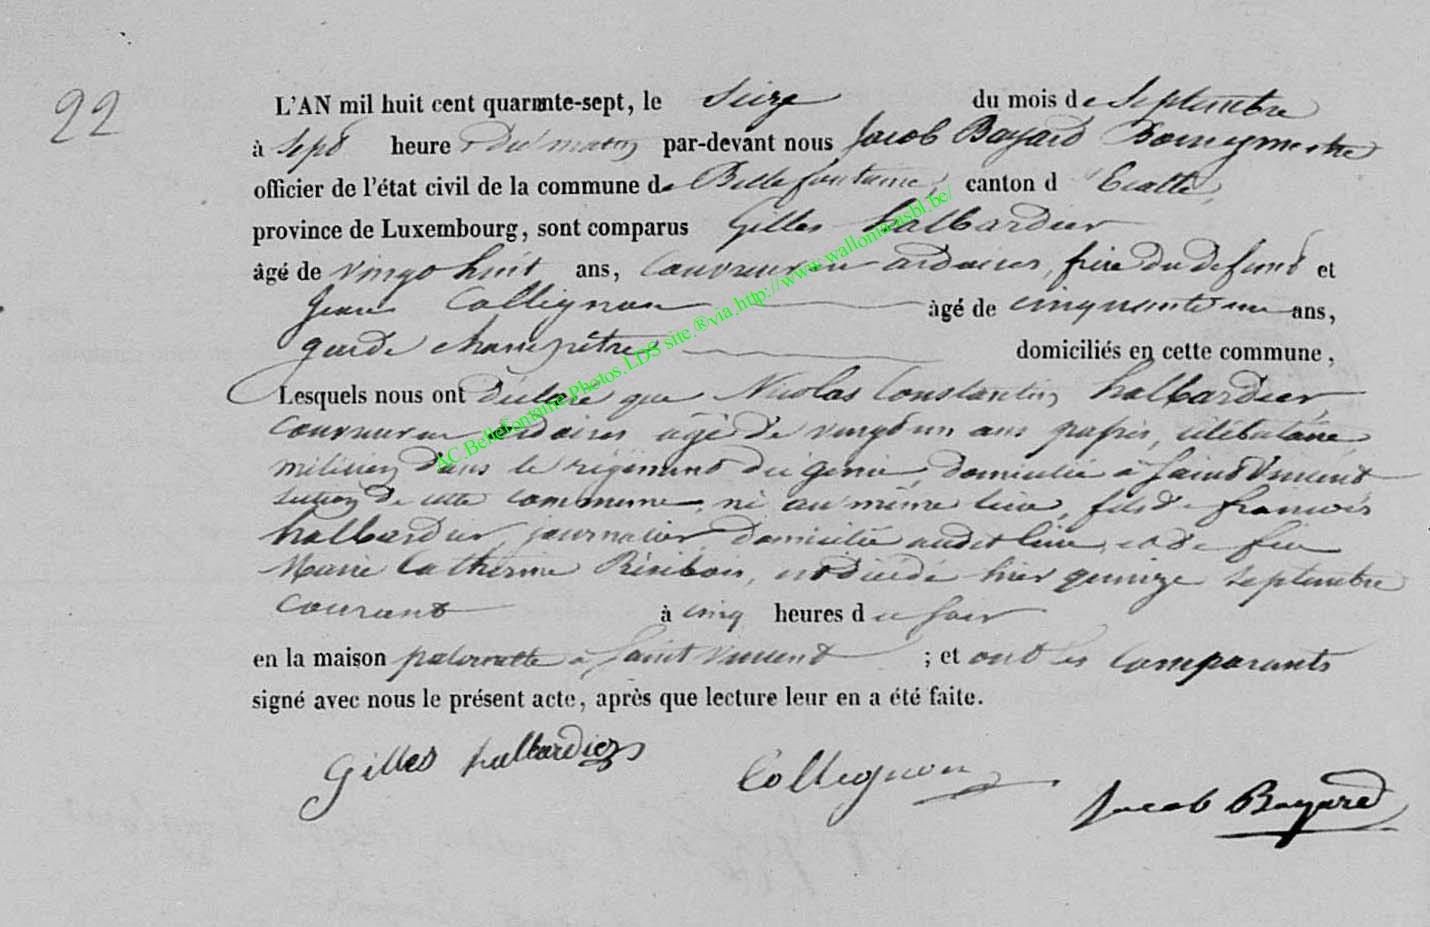 22
L'AN mil huit cent quarante-sept, le Seize du mois de Septembre
à Sept heures du matin par-devant nous Jacob Bayard Bourgmestre
officier de l'état civil de la commune de Bellefontaine, canton d'Etalle,
province de Luxembourg, sont comparus Gilles halbardier
âgé de vingt huit ans, Couvreur en ardoises, frère du defunt et
Jean Collignon âgé de cinquante un ans,
garde champêtre domiciliés en cette commune,
Lesquels nous ont déclaré que Nicolas Constantin halbardier,
Couvreur en ardoises agé de vingt un ans célibataire
milicien dans le régiment du genie, domicilié à Saint Vincent
section de cette commune, né au même lieu, fils de francois
halbardier, journalier, domicilié audit lieu, et de feue
Marie Catherine, est décédé hier quinze septembre
courant à cinq heures du soir
en la maison paternelle à Saint Vincent ; et ont les Comparants
signé avec nous le présent acte, après que lecture leur en a été faite.
Gilles halbardier Collignon Jacob Bayard
AC.Bellefontaine.Photos.LDS site.®via.http://www.wallonia-asbl.be/